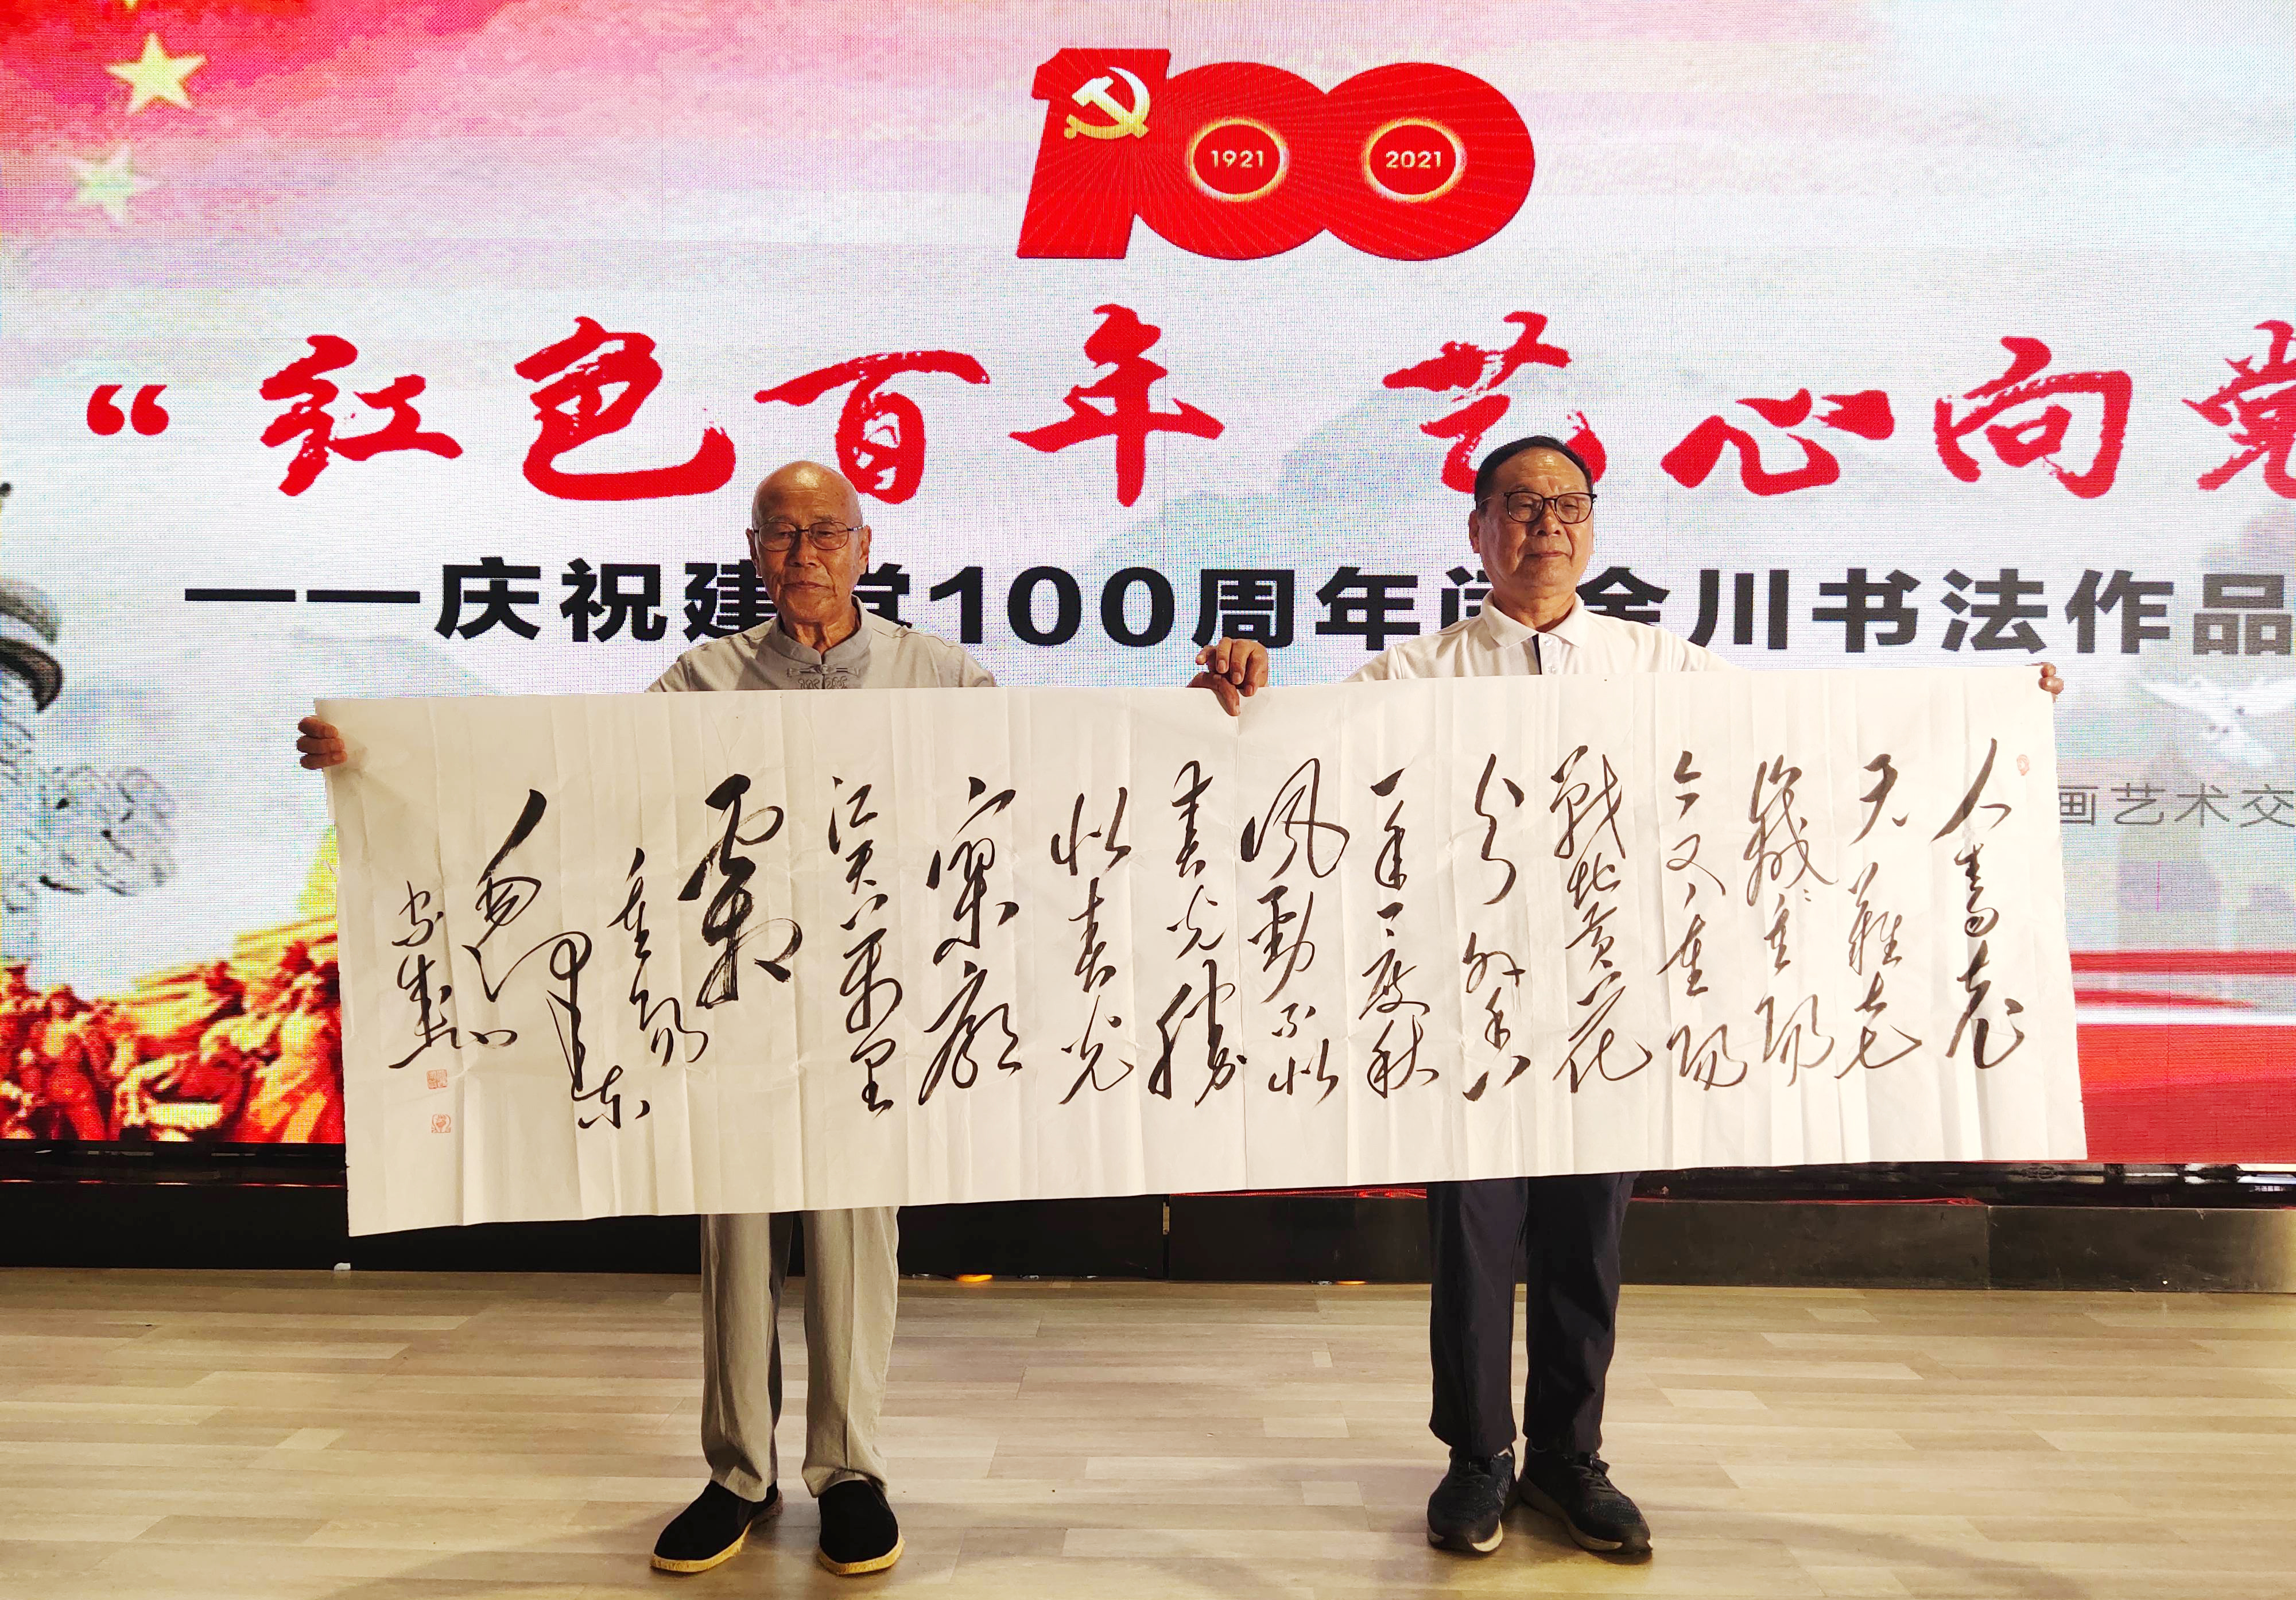 100
1921
2021
“红色百年 艺心向党
——庆祝建党100周年 金川书法作品
画艺术交
人生易老
天難老
歲歲重陽
今又重陽
戰地黄花
分外香
一年一度秋
风勁不似
春光勝
似春光
寥廓
江天萬里
霜
重陽
毛泽东